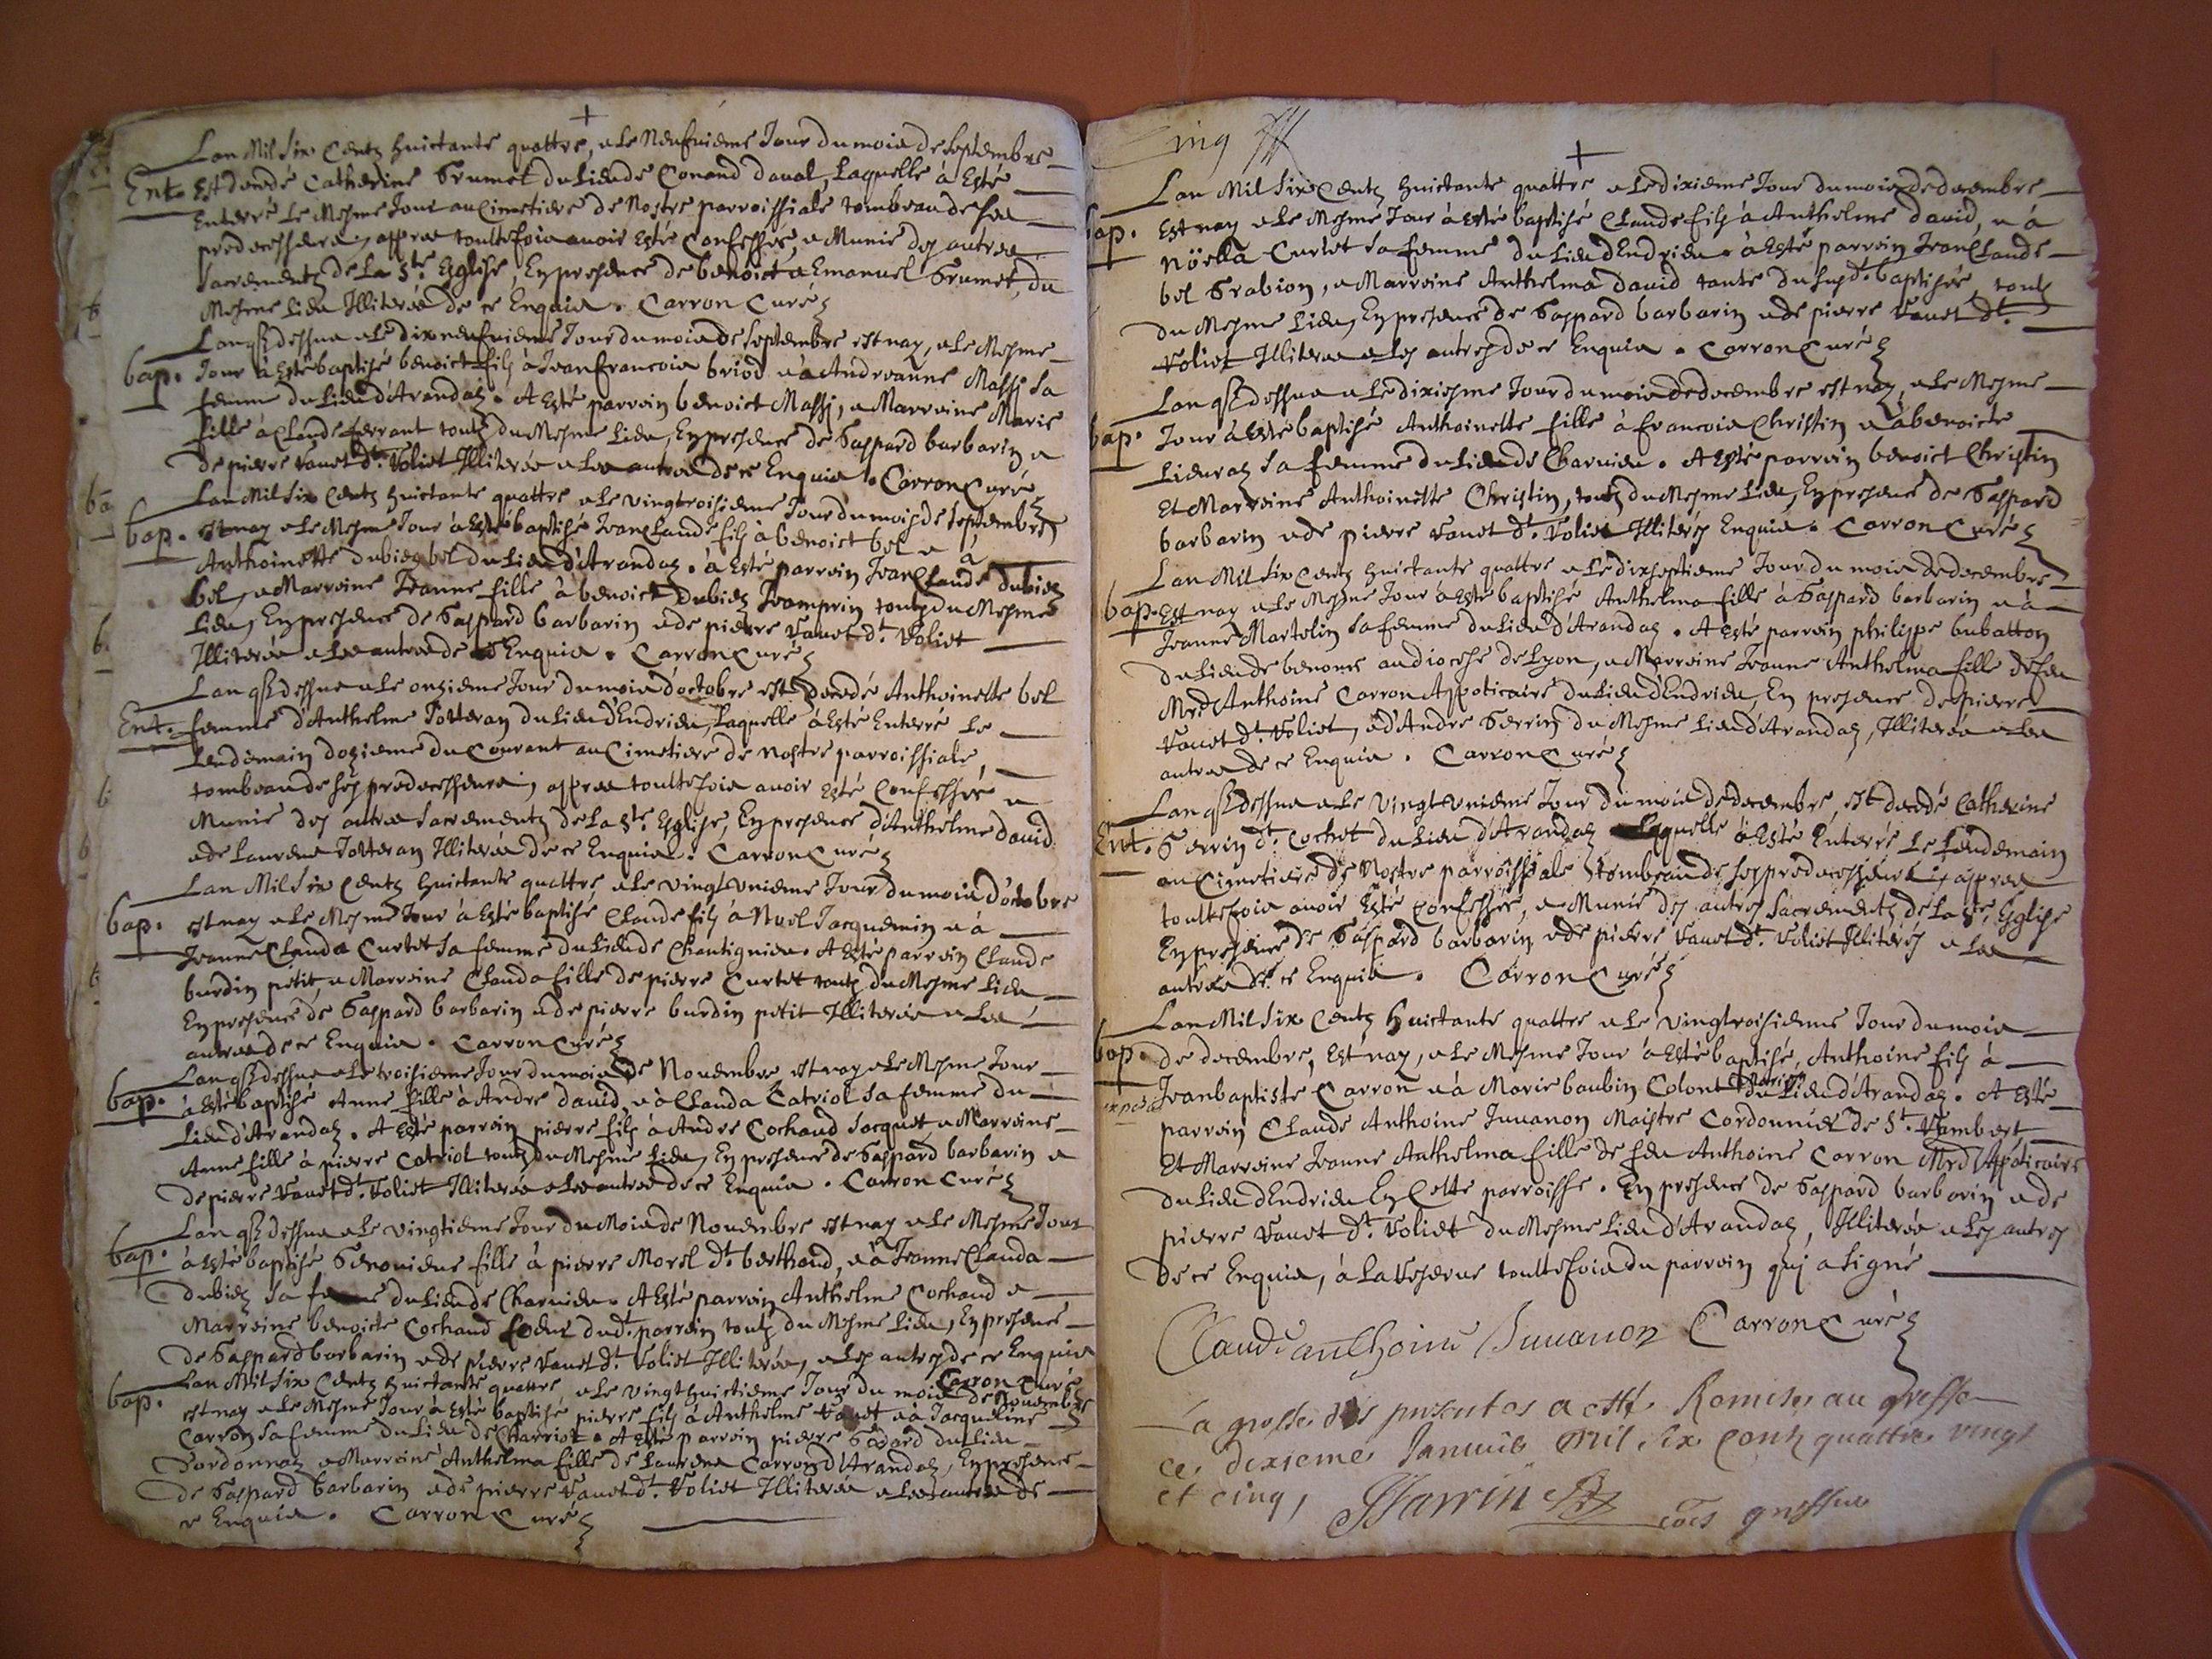 +
Lan Mil Six Centz huictante quattre, & Le Neufuieme Jour du mois de Septembre
Ent. Est decedé Catherine Grumet du Lieu de Conand daual, Laquelle à Esté
Enterré Le Mesme Jour au Cimetiere de Nostre parroissiale tombeau de ses
predecesseurs, appres touttefois auoir Esté Confessée, & Munie des autres
Sacrements de La Ste. Esglise, En presence de benoict & Emanuel Grumet, du
Mesme Lieu Illiterés de ce Enquis. Carron Curé
Lan qs. dessus & Le dixneufuieme Jour du mois de Septembre est nay, & Le Mesme
bap. Jour à Esté baptisé benoict filz à Jean francois briod & à Andreanne Massj Sa
femme du Lieu d'Arandaz. A Esté parrein benoict Massj, & Marreine Marie
fille à Claude ferrant toutz du Mesme Lieu, En presence de Gaspard barbarin &
de pierre Vauet dt. Voliet Illiterés & Les autres de ce Enquis. Carron Curé
Lan Mil Six Centz huictante quattre & Le vingtroisieme Jour du mois de Septembre
bap. est nay & Le Mesme Jour à Esté baptisé Jean Claude filz à benoict bel & à
Anthoinette dubiez bel du Lieu d'Arandaz. à Esté parrein Jean Claude dubiez
bel, & Marreine Jeanne fille à benoict dubiez Jeamprin toutz du Mesme
Lieu, En presence de Gaspard barbarin & de pierre Vauet dt. Voliet
Illiterés & Les autres de ce Enquis. Carron Curé
Lan qs. dessus & Le onzieme Jour du mois d'octobre est decedé Anthoinette bel
Ent. femme d'Anthelme Totteran du Lieu d'Endrieu, Laquelle à Esté Enterré Le
Lendemain dozieme du Courant au Cimetiere de nostre parroissiale,
tombeau de ses predecesseurs, appres touttefois auoir Esté Confessée &
Munie des autres Sacrements de La Ste. Esglise, En presence d'Anthelme dauid
& de Laurens Totteran Illiterés de ce Enquis. Carron Curé
Lan Mil Six Centz huictante quattre & Le vingtvnieme Jour du mois d'octobre
bap. est nay & Le Mesme Jour à Esté baptisé Claude filz à Noel Jacquemin & à
Jeanne Clauda Curtet Sa femme du Lieu de Chantignieu. A Esté parrein Claude
burdin petit & Marreine Clauda fille de pierre Curtet toutz du Mesme Lieu
En presence de Gaspard barbarin & de pierre burdin petit Illiterés & Les
autres de ce Enquis. Carron Curé
Lan qs. dessus & Le troisieme Jour du mois de Nouembre est nay & Le Mesme Jour
bap. à Esté baptisé Anne fille à Andre dauid & à Clauda Catriol Sa femme du
Lieu d'Arandaz. A Esté parrein pierre filz à André Cochaud Jacquet & Marreine
Anne fille à pierre Catriol toutz du Mesme Lieu, En presence de Gaspard barbarin &
de pierre Vauet dt. Voliet Illiterés & Les autres de ce Enquis. Carron Curé
Lan qs. dessus & Le vingtieme Jour du Mois de Nouembre est nay & Le Mesme Jour
bap. à Esté baptisé Genouieue fille à pierre Morel dt. berthaud, & à Jeanne Clauda
dubiez Sa femme du Lieu de Charuieu. A Esté parrein Anthelme Cochaud &
Marreine benoicte Cochaud soeur dudt. parrein toutz du Mesme Lieu, En presence
de Gaspard barbarin & de pierre Vauet dt. Voliet Illiterés, & Les autres de ce Enquis
Carron Curé
Lan Mil Six Centz huictante quattre, & Le vingthuictieme Jour du mois de Nouembre
bap. est nay & Le Mesme Jour à Esté baptisé pierre filz à Anthelme Vauet & à Jacqueline
Carron Sa femme du Lieu de Charriot. A Esté parrein pierre Godard du Lieu
d'ordonnaz & Marreine Anthelma fille de Laurens Carron d'Arandaz, En presence
de Gaspard barbarin & de pierre Vauet dt. Voliet Illiterés & Les autres de
ce Enquis. Carron Curé
Cinq
+
Lan Mil Six Centz huictante quattre & Le dixieme Jour du mois de decembre
bap. Est nay & Le Mesme Jour à Esté baptisé Claude filz à Anthelme dauid, & à
Nöella Curtet Sa femme du Lieu d'Endrieu. à Esté parrein Jean Claude
bel Grabion, & Marreine Anthelma dauid tante du susdt. baptisé, toutz
du Mesme Lieu, En presence de Gaspard barbarin & de pierre Vauet dt.
Voliet Illiteres & Les autres de ce Enquis. Carron Curé
Lan qs. dessus & Le dixiesme Jour du mois de decembre est nay, & Le Mesme
bap. Jour à Esté baptisé Anthoinette fille à francois Christin & à benoicte
Lieuraz Sa femme du Lieu de Charuieu. A Esté parrein benoict Christin
Et Marreine Anthoinette Christin, toutz du Mesme Lieu, En presence de Gaspard
barbarin & de pierre Vauet dt. Voliet Illiterés Enquis. Carron Curé
Lan Mil Six Centz huictante quattre & Le dixseptieme Jour du mois de decembre
bap. Est nay & Le Mesme Jour à Esté baptisé Anthelma fille à Gaspard barbarin & à
Jeanne Martelin Sa femme du Lieu d'Arandaz. A Esté parrein philippe bubatton
du Lieu de benonce au diocese de Lyon, & Marreine Jeanne Anthelma fille de feu
Mre Anthoine Carron Appoticaire du Lieu d'Endrieu, En presence de pierre
Vauet dt. Voliet, & d'Andre Gerrin du Mesme Lieu d'Arandaz, Illiterés & Les
autres de ce Enquis. Carron Curé
Lan qs. dessus & Le vingtvnieme Jour du mois de decembre, est decedé Catherine
Ent. Gerrin dt. Cochet du Lieu d'Arandaz Laquelle à Esté Enterré Le Lendemain
au Cimetiere de Nostre parroissiale tombeau de ses predecesseurs, appres
touttefois auoir Esté Confessée, & Munie des autres Sacrements de La Ste. Esglise
En presence de Gaspard barbarin & de pierre Vauet dt. Voliet Illiterés & Les
autres de ce Enquis. Carron Curé
Lan Mil Six Centz huictante quattre & Le vingtroisieme Jour du mois
bap. de decembre, Est nay, & Le Mesme Jour à Esté baptisé, Anthoine filz à
Jean baptiste Carron & à Marie baubin Colont Mariés du Lieu d'Arandaz. A Esté
parrein Claude Anthoine Juuanon Maistre Cordonnier de St. Rambert
Et Marreine Jeanne Anthelma fille de feu Anthoine Carron Mre Appoticaire
du Lieu d'Endrieu En Cette parroisse. En presence de Gaspard barbarin & de
pierre Vauet dt. Voliet du Mesme Lieu d'Arandaz, Illiterés & Les autres
de ce Enquis, à La reserue touttefois du parrein quj a signé
Claude anthoine Juuanon Carron Curé
La grosse des presentes a esté Remise au greffe
ce dixieme Januier Mil six Cent quattre vingt
et cinq, Warrin
greffier